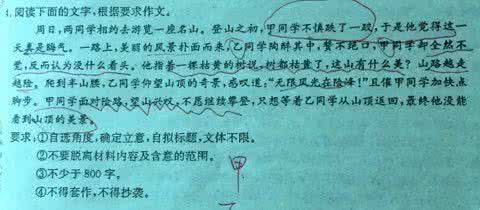 1.阅读下面的文字,根据要求作文。
周日,两同学相约去游览一座名山。登山之初,甲同学不慎跌了一跤,于是他觉得这一
天真是晦气。一路上,美丽的风景扑面而来,乙同学陶醉其中,赞不绝口,甲同学却全然不
觉,反而认为没什么看头。他指着一棵枯黄的树说,树都枯黄了,这山有什么美?山路越走
越险。爬到半山腰,乙同学仰望山顶的奇景,感叹道:“无限风光在险峰!”且催甲同学加快点
脚步。甲同学面对险路,望山兴叹,不愿继续攀登,只想等着乙同学从山顶返回,最终他没能
看到山顶的美景。
要求:①自选角度,确定立意,自拟标题,文体不限。
②不要脱离材料内容及含意的范围。
③不少于800字。
④不得套作,不得抄袭。
甲